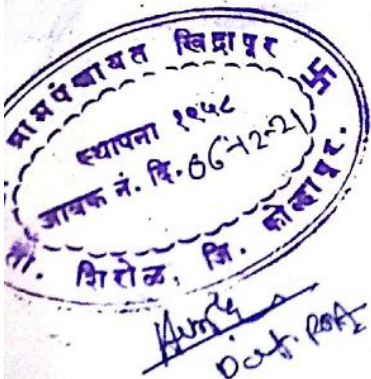 ग्रामपंचायत खिद्रापूर 卐
स्थापना १९५८
जावक नं. दि. 06-12-21
ता. शिरोळ, जि. कोल्हापूर.